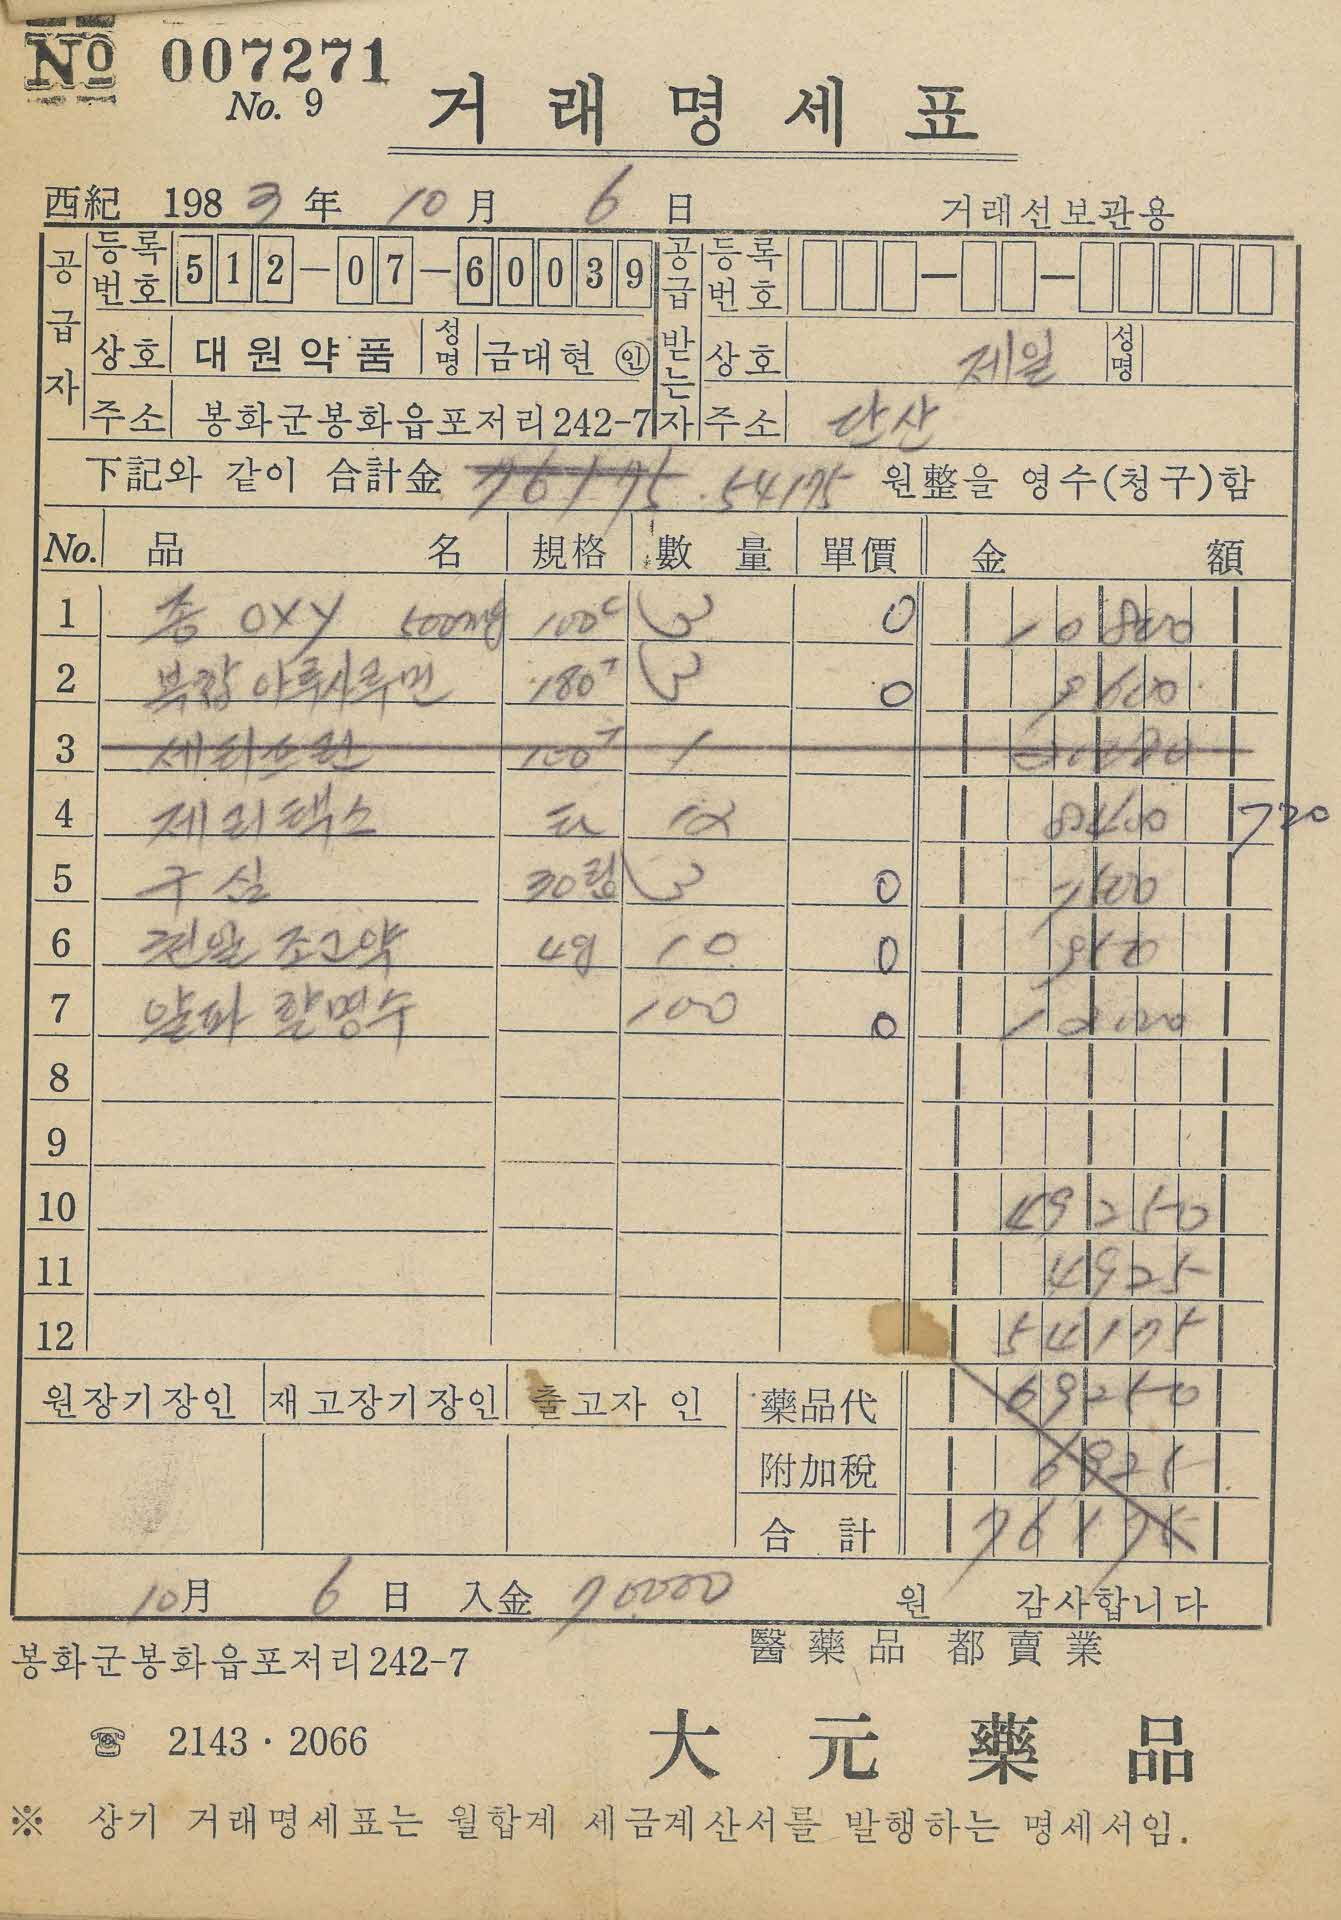 No 007271
No. 9 거래명세표
西紀 1983年 10月 6日 거래선보관용
공급자 등록번호 512-07-60039 공급받는자 등록번호
상호 대원약품 성명 금대현 ㊞ 상호 제일 성명
주소 봉화군봉화읍포저리242-7 주소 단산
下記와 같이 合計金 76175 . 54175 원整을 영수(청구)함
No. 品名 規格 數量 單價 金額
1 종 OXY 500mg 100c 3 0 10800
2 복합 아루사루민 180T 3 0 9600
3 세리프린 100T 1
4 제리텍스 타 12 8400 720
5 구심 30립 3 0
6 조고약 4g 10 0
7 알파 활명수 100 0 12000
8
9
10 49250
11 4925
12 54175
원장기장인 재고장기장인 출고자 인 藥品代 69250
附加稅 6925
合計 76175
10月 6日 入金 70000 원 감사합니다
봉화군봉화읍포저리242-7 醫藥品 都賣業
☎ 2143·2066 大元藥品
※ 상기 거래명세표는 월합계 세금계산서를 발행하는 명세서임.